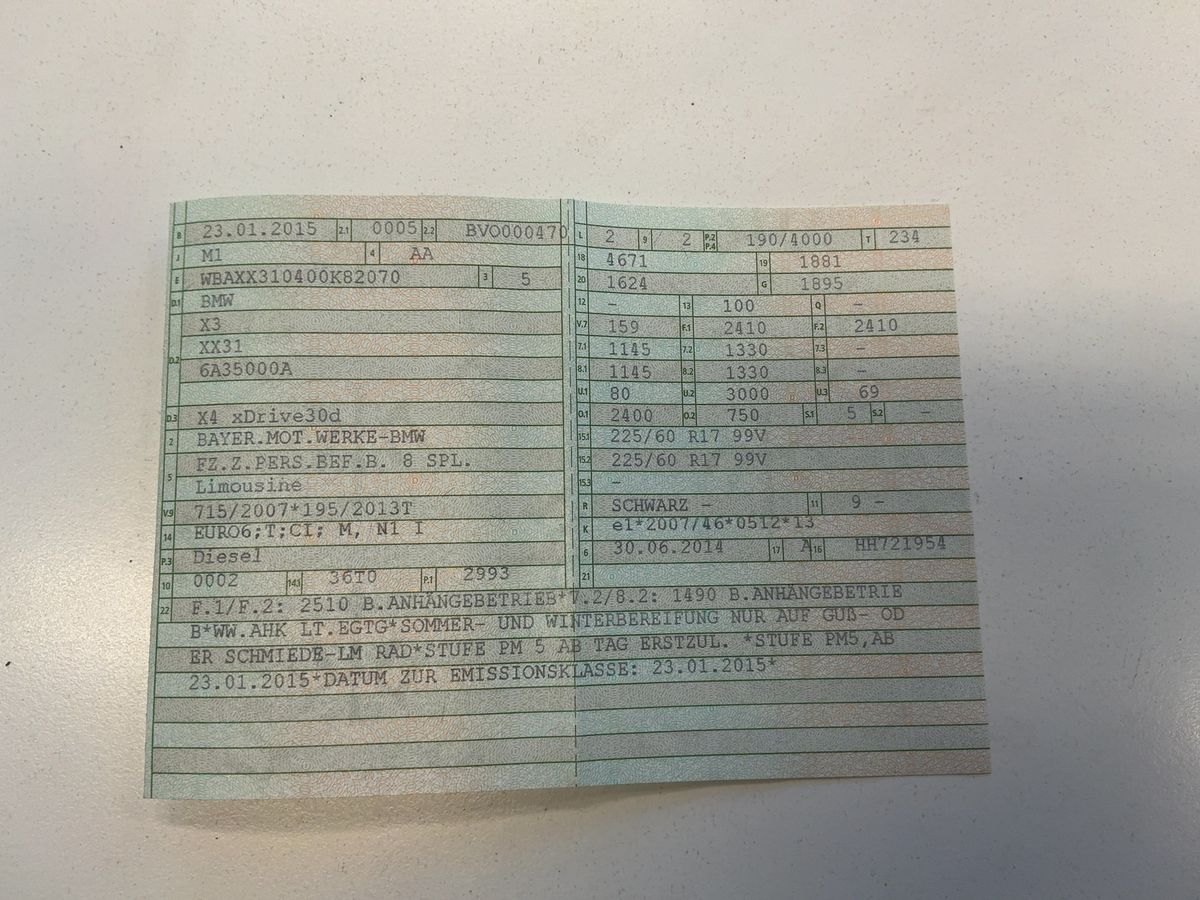 B 23.01.2015 2.1 0005 2.2 BVO000470
J M1 4 AA
E WBAXX310400K82070 3 5
D.1 BMW
X3
XX31
D.2 6A35000A
D.3 X4 xDrive30d
2 BAYER.MOT.WERKE-BMW
5 FZ.Z.PERS.BEF.B. 8 SPL.
Limousine
V.9 715/2007*195/2013T
14 EURO6;T;CI; M, N1 I
P.3 Diesel
10 0002 14.1 36T0 P.1 2993
L 2 9 2 P.2 P.4 190/4000 T 234
18 4671 19 1881
20 1624 G 1895
12 – 13 100 Q –
V.7 159 F.1 2410 F.2 2410
7.1 1145 7.2 1330 7.3 –
8.1 1145 8.2 1330 8.3 –
U.1 80 U.2 3000 U.3 69
O.1 2400 O.2 750 S.1 5 S.2 –
15.1 225/60 R17 99V
15.2 225/60 R17 99V
15.3 –
R SCHWARZ – 11 9 –
K e1*2007/46*0512*13
6 30.06.2014 17 A 16 HH721954
21
22 F.1/F.2: 2510 B.ANHÄNGEBETRIEB*7.2/8.2: 1490 B.ANHÄNGEBETRIE
B*WW.AHK LT.EGTG*SOMMER- UND WINTERBEREIFUNG NUR AUF GUß- OD
ER SCHMIEDE-LM RAD*STUFE PM 5 AB TAG ERSTZUL. *STUFE PM5,AB
23.01.2015*DATUM ZUR EMISSIONSKLASSE: 23.01.2015*